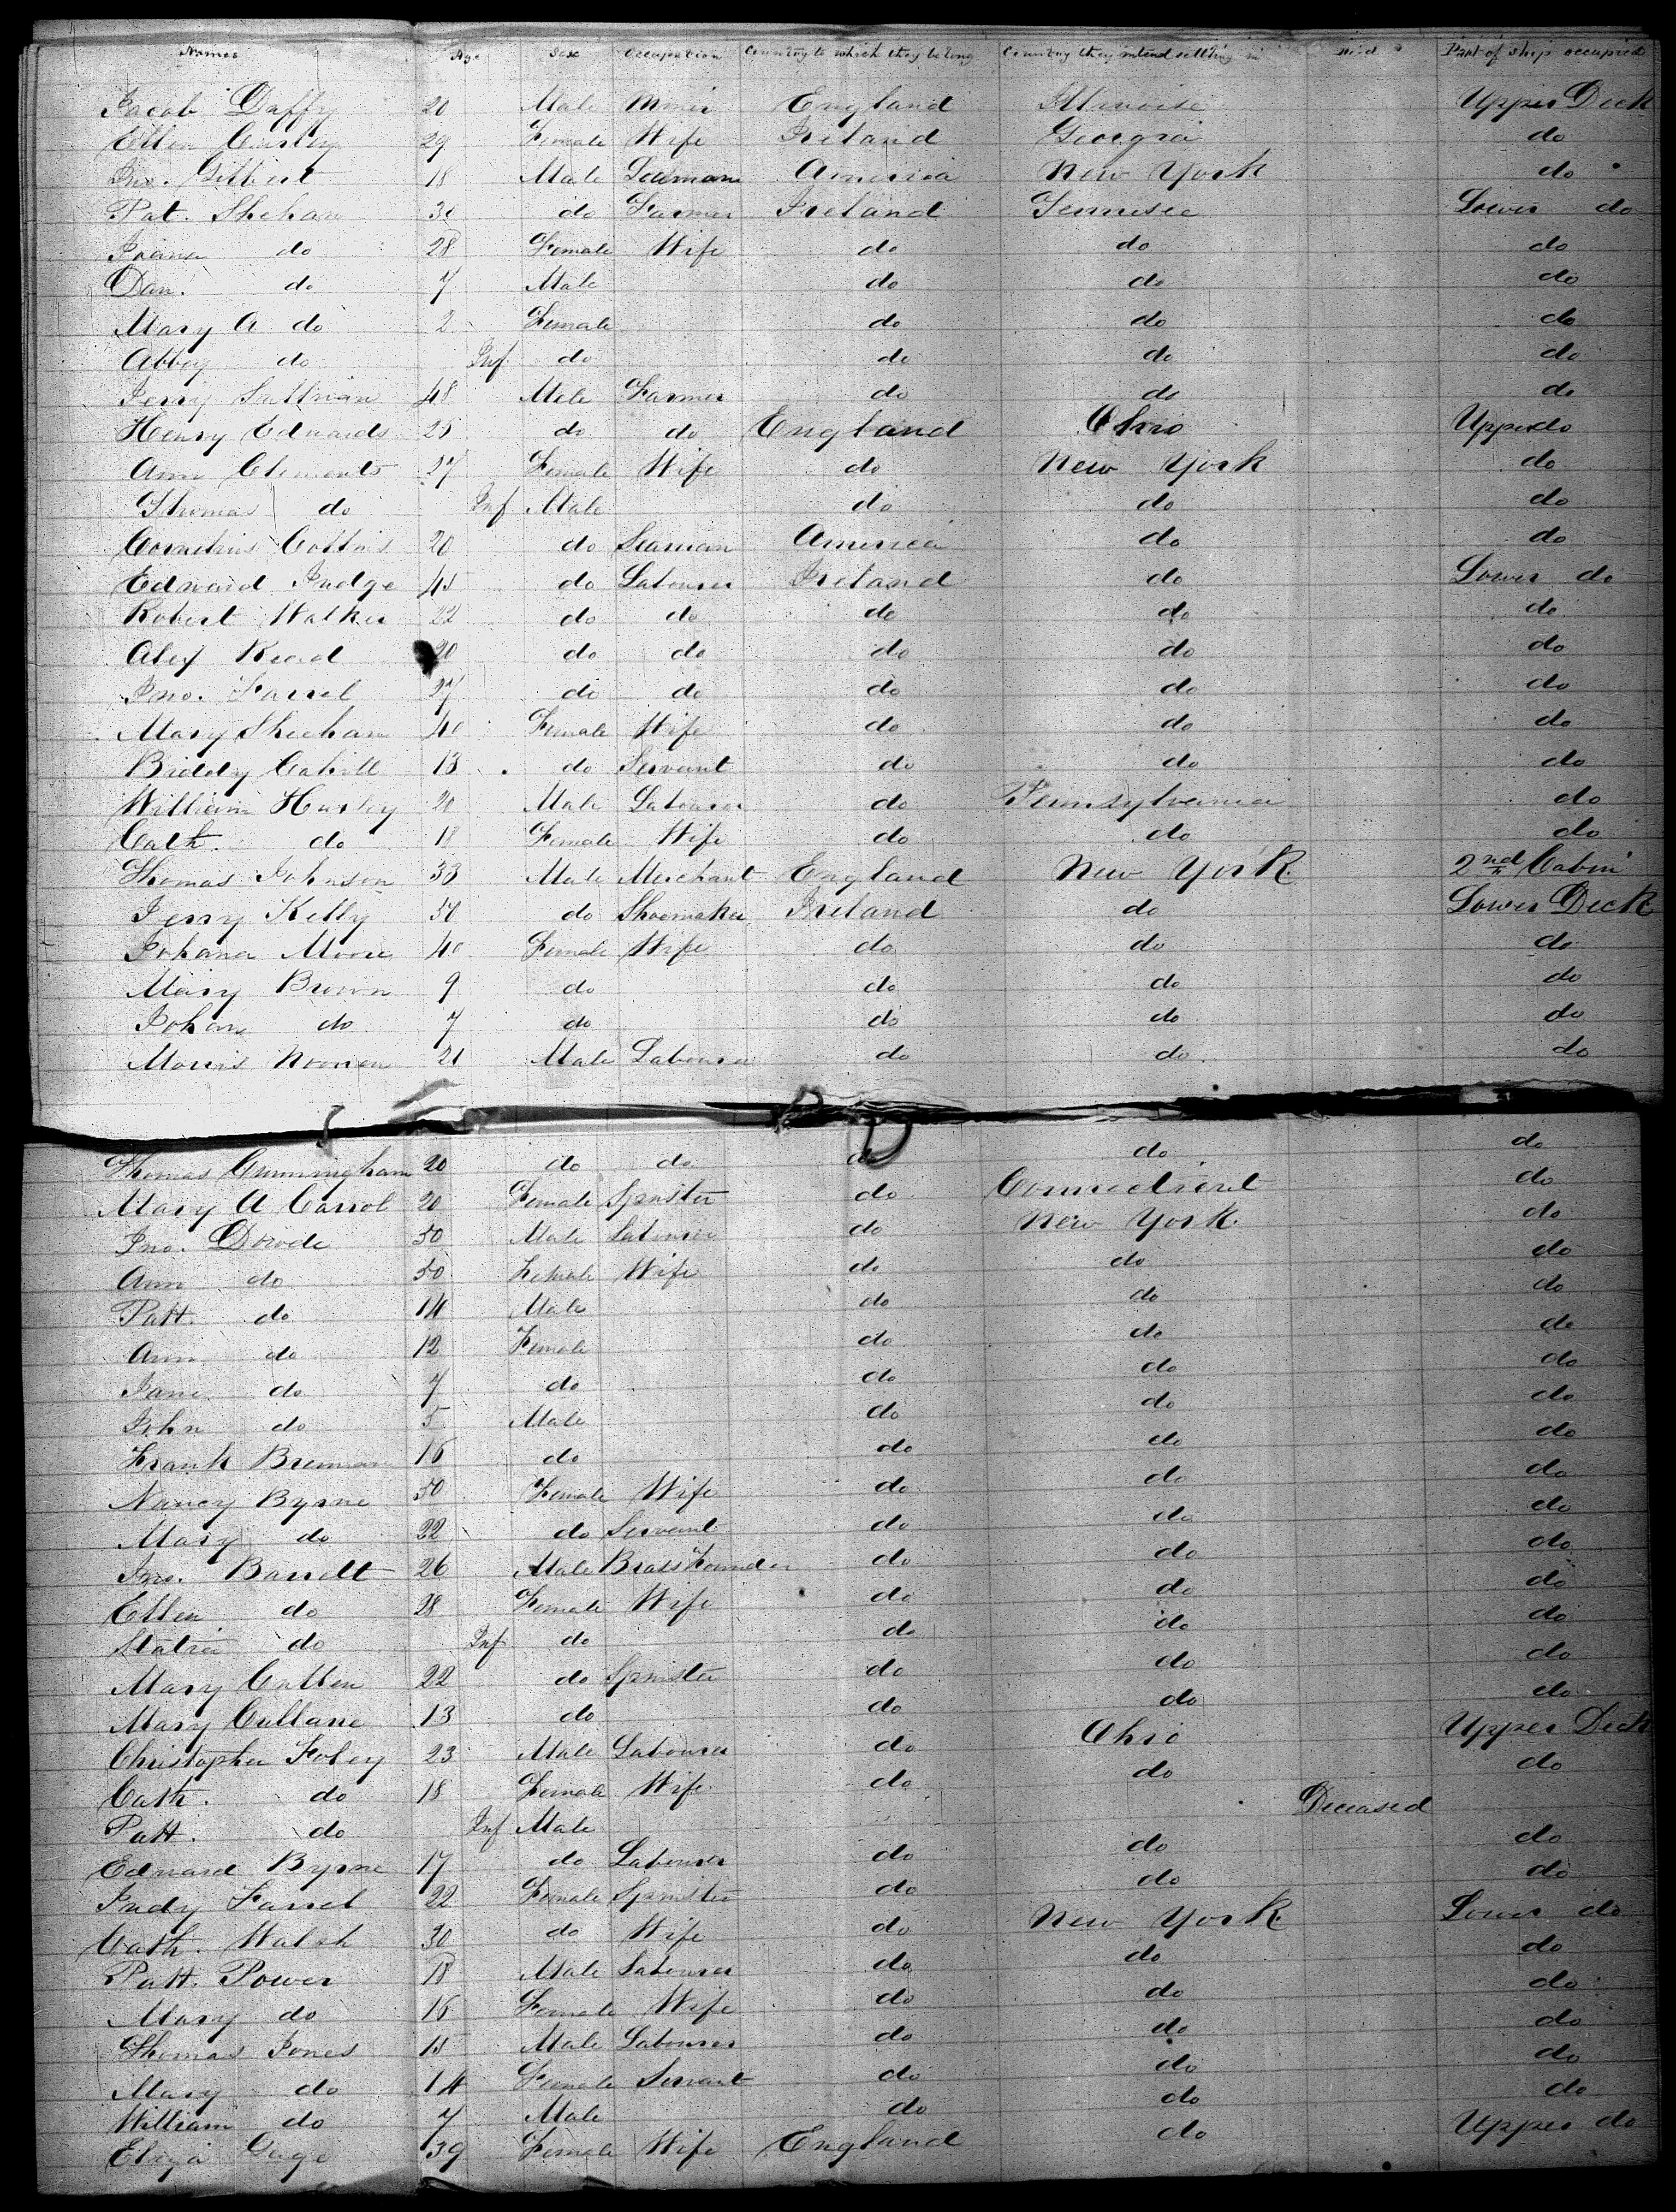 Names Age Sex Occupation Country to which they belong Country they intend settling in Died Part of Ship occupied
Jacob Daffy 20 Male Miner England Illinoise Upper Deck
Ellen 29 Female Wife Ireland Georgia do
Jno. Gilbert 18 Male Seaman America New York do
Pat. Shehan 30 do Farmer Ireland Tennisee Lower do
Joana do 28 Female Wife do do do
Dan. do 7 Male do do do
Mary A do 2 Female do do do
Abbey do Inf do do do do
Jerry Sullivan 48 Male Farmer do do do
Henry Edwards 25 do do England Ohio Upper do
Ann Clements 27 Female Wife do New York do
Thomas do Inf Male do do do
Cornelius Collins 20 do Seaman America do do
Edward Judge 45 do Labourer Ireland do Lower do
Robert Walker 22 do do do do do
Alex Read 20 do do do do do
Jno. Farrel 27 do do do do do
Mary Sheehan 40 Female Wife do do do
Biddy Cahill 13 do Servant do do do
William Hurley 20 Male Labourer do Pennsylvania do
Cath. do 18 Female Wife do do do
Thomas Johnson 33 Male Merchant England New York 2nd Cabin
Jerry Kelly 30 do Shoemaker Ireland do Lower Deck
Johana Moore 40 Female Wife do do do
Mary Brown 9 do do do do
Johan do 7 do do do do
Morris Noonen 21 Male Labourer do do do
Thomas Cunningham 20 do do do do do
Mary A Carrol 20 Female Spinster do Connecticut do
Jno. Dowde 50 Male Labourer do New York do
Ann do 50 Female Wife do do do
Patt. do 14 Male do do do
Ann do 12 Female do do do
Jane do 7 do do do do
John do 5 Male do do do
Frank Brennan 16 do do do do
Nancy Byrne 50 Female Wife do do do
Mary do 22 do Servant do do do
Jno. Barrett 26 Male Brass Founder do do do
Ellen do 28 Female Wife do do do
Statia do Inf do do do do
Mary Cullen 22 do Spinster do do do
Mary Cullane 13 do do do do
Christopher Foley 23 Male Labourer do Ohio Upper Deck
Cath. do 18 Female Wife do do do
Patt. do Inf Male Deceased
Edward Byrne 17 do Labourer do do do
Judy Farrel 22 Female Spinster do do do
Cath. Walsh 30 do Wife do New York Lower do
Patt. Power 18 Male Labourer do do do
Mary do 16 Female Wife do do do
Thomas Jones 15 Male Labourer do do do
Mary do 14 Female Servant do do do
William do 7 Male do do do
Eliza Gage 39 Female Wife England do Upper do